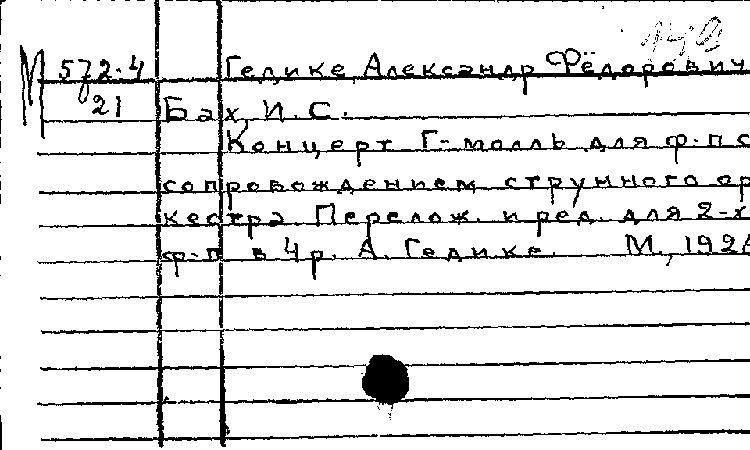 М 572.4 Гедике, Александр Фёдорович
21 Бах, И.С.
Концерт Г-молль для ф-п с
сопровождением струнного ор
кестра. Перелож. и ред. для 2-х
ф-п в 4 р. А. Гедике. М., 192